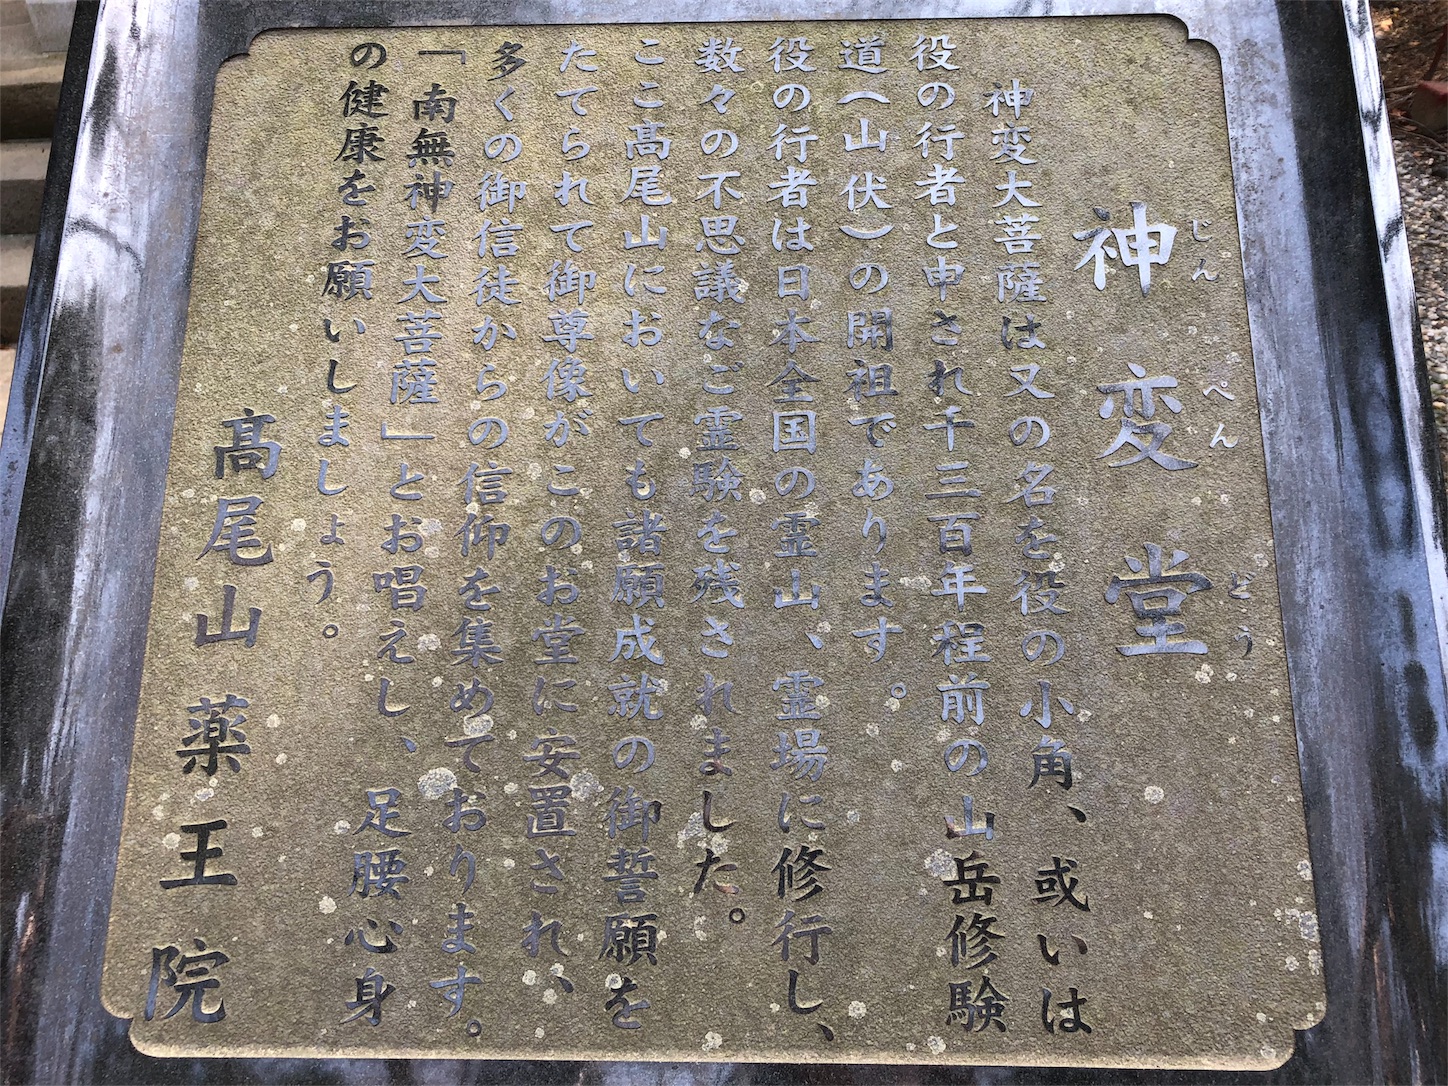 神変堂
じんぺんどう
神変大菩薩は又の名を役の小角、或いは
役の行者と申され千三百年程前の山岳修験
道(山伏)の開祖であります。
役の行者は日本全国の霊山、霊場に修行し、
数々の不思議なご霊験を残されました。
ここ髙尾山においても諸願成就の御誓願を
たてられて御尊像がこのお堂に安置され、
多くの御信徒からの信仰を集めております。
「南無神変大菩薩」とお唱えし、足腰心身
の健康をお願いしましょう。
髙尾山薬王院